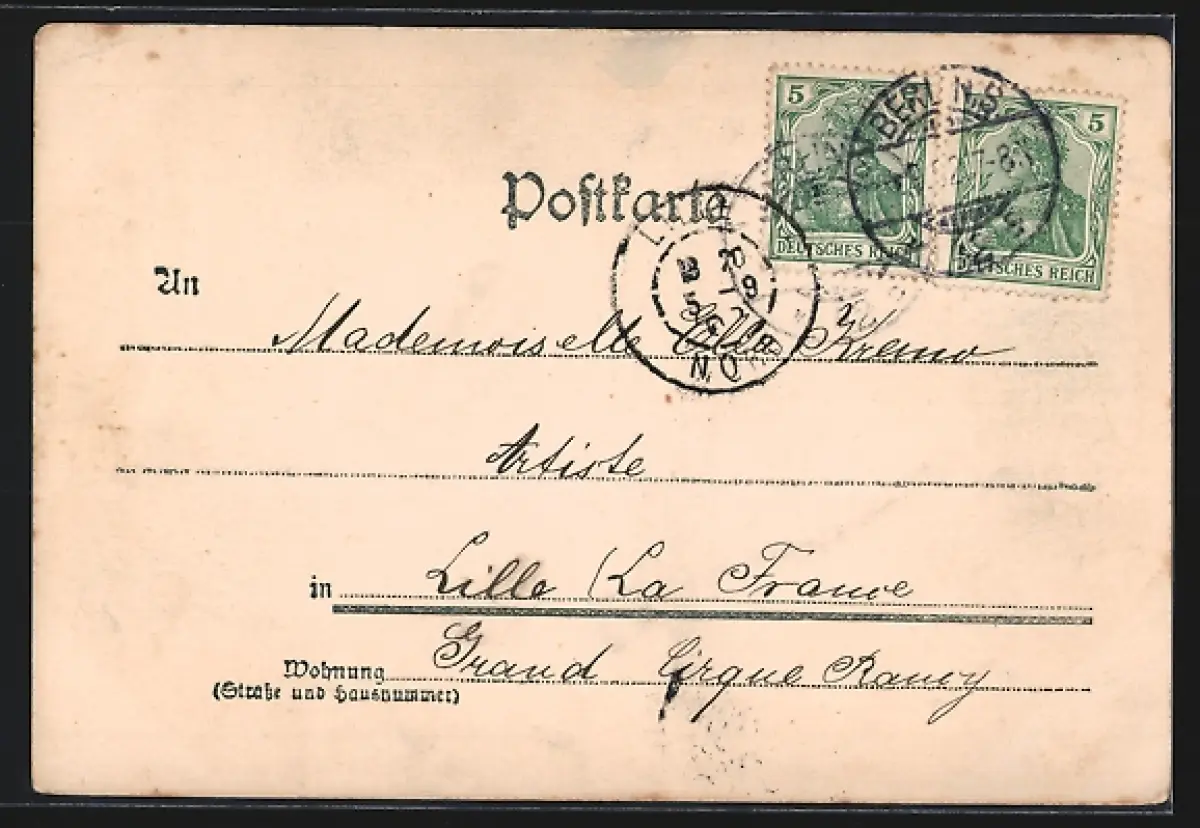 5 5
BERLIN.S.
DEUTSCHES REICH DEUTSCHES REICH
Postkarte
An
Mademoiselle Ella Kremo
Artiste
in Lille (La France
Grand Cirque Rancy
Wohnung
(Straße und Hausnummer)